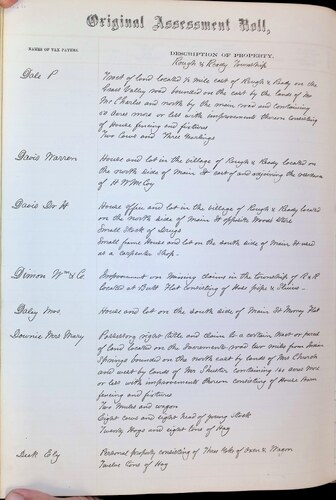 Original Assessment Roll,
NAMES OF TAX PAYERS
DESCRIPTION OF PROPERTY.
Rough & Ready Township
Dale P
Tract of land located ½ mile east of Rough & Ready on the
Grass Valley road bounded on the east by the lands of
Mc Charles and north by the main road and containing
acres more or less with improvements thereon consisting
of House fencing and fixtures
Two Cows and Three Yearlings
Davis Warren
House and lot in the village of Rough & Ready located on
the north side of Main St east of and adjoining the residence
of H W McCoy
Davis Dr H
House Office and lot in the village of Rough & Ready located
on the north side of Main St opposite Store
Small Stock of Drugs
Small frame House and lot on the south side of Main St used
as a carpenter shop.
Dimon Wm & Co
Improvement on Mining claims in the township of R & R
located at Butt Flat consisting of Hose pipe & Flume
Daley Mrs
House and lot on the south side of Main St
Downie Mrs Mary
Possessory right title and claim to a certain tract or parcel
of land located on the Sacramento road two miles from
Springs bounded on the north east by lands of Mrs Church
and west by lands of containing 160 acres more
or less with improvements thereon consisting of House barn
fencing and fixtures
Two Mules and wagon
Eight cows and eight head of young stock
Twenty Hogs and eight tons of Hay
Eby
Personal property consisting of Three Yoke of Oxen & Wagon
Twelve tons of Hay